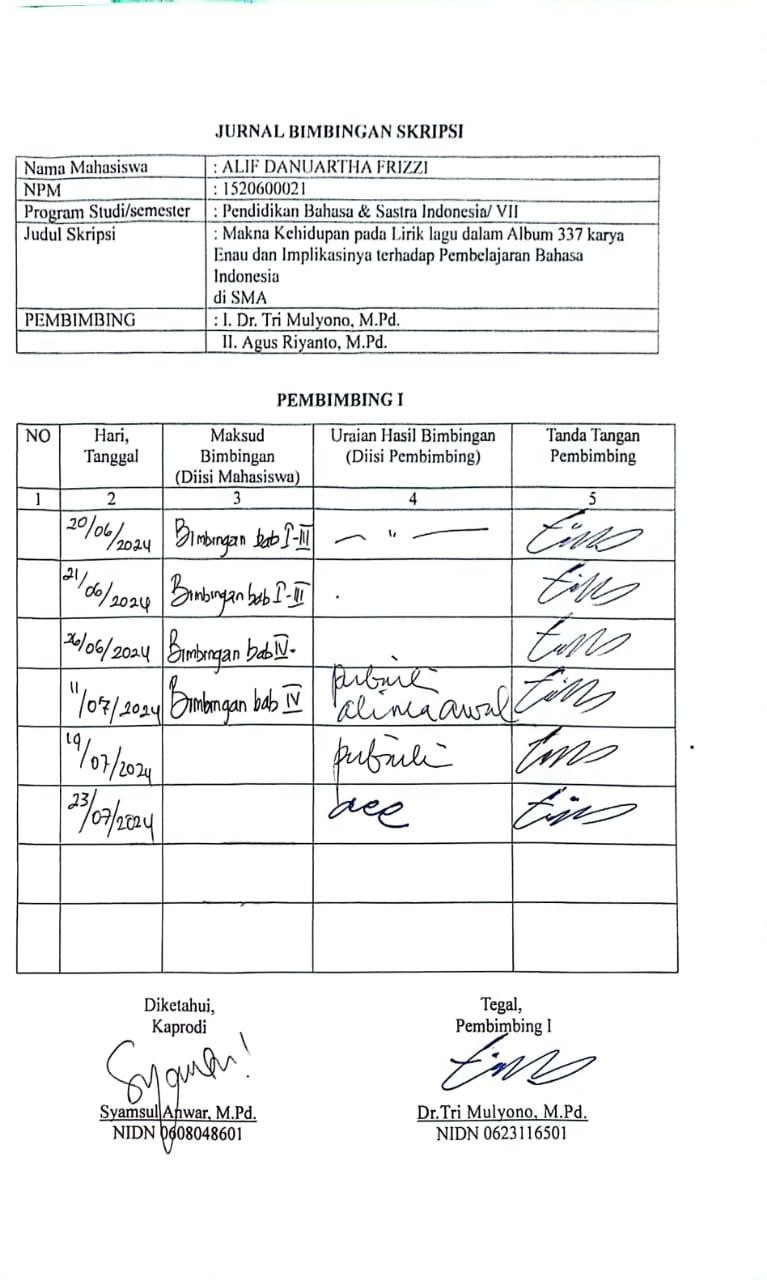 JURNAL BIMBINGAN SKRIPSI
Nama Mahasiswa : ALIF DANUARTHA FRIZZI
NPM : 1520600021
Program Studi/semester : Pendidikan Bahasa & Sastra Indonesia/ VII
Judul Skripsi : Makna Kehidupan pada Lirik lagu dalam Album 337 karya
Enau dan Implikasinya terhadap Pembelajaran Bahasa
Indonesia
di SMA
PEMBIMBING : I. Dr. Tri Mulyono, M.Pd.
II. Agus Riyanto, M.Pd.
PEMBIMBING I
NO Hari, Tanggal Maksud Bimbingan (Diisi Mahasiswa) Uraian Hasil Bimbingan (Diisi Pembimbing) Tanda Tangan Pembimbing
1 2 3 4 5
20/06/2024 Bimbingan bab I-III — " —
21/06/2024 Bimbingan bab I-III
26/06/2024 Bimbingan bab IV-
11/07/2024 Bimbingan bab IV perbaiki alinea awal
19/07/2024 perbaiki
23/07/2024 acc
Diketahui, Tegal,
Kaprodi Pembimbing I
Syamsul Anwar, M.Pd. Dr.Tri Mulyono, M.Pd.
NIDN 0608048601 NIDN 0623116501